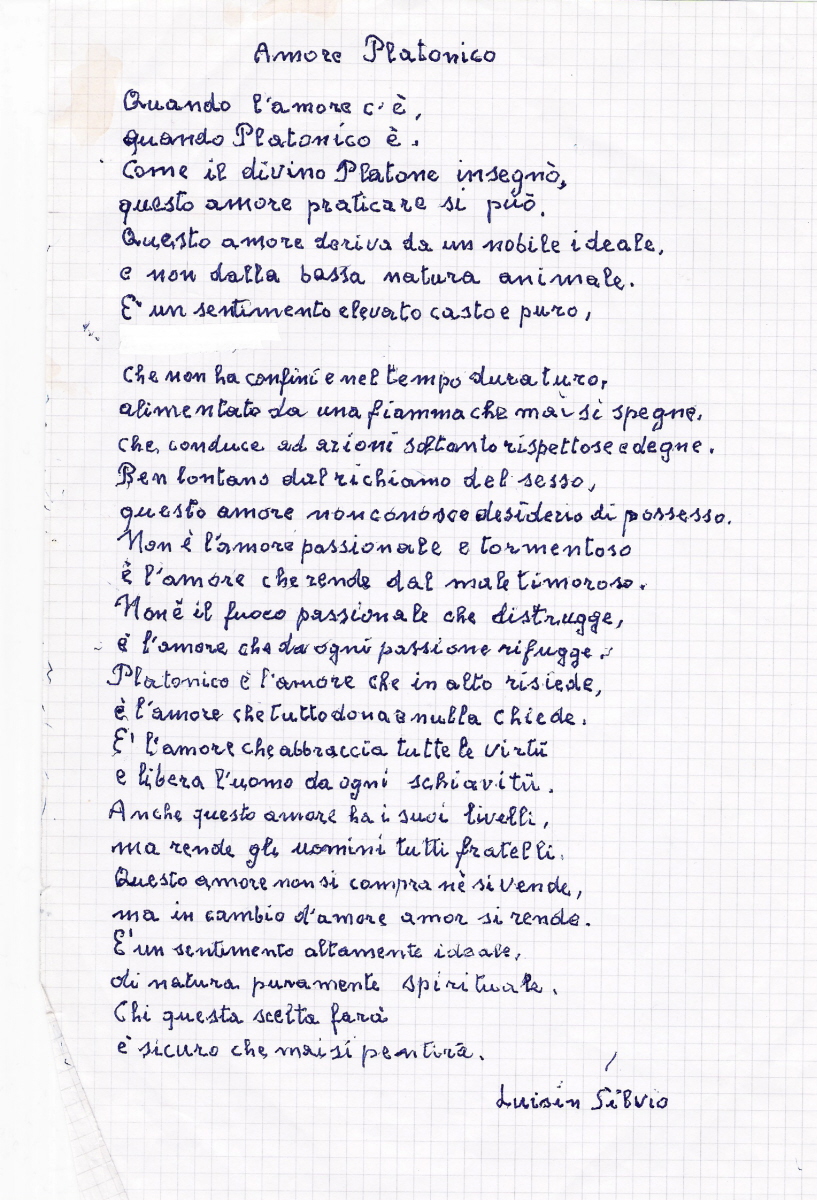 Amore Platonico
Quando l'amore c'è,
quando Platonico è.
Come il divino Platone insegnò,
questo amore praticare si può.
Questo amore deriva da un nobile ideale,
e non dalla bassa natura animale.
E' un sentimento elevato casto e puro,
che non ha confini e nel tempo duraturo,
alimentato da una fiamma che mai si spegne,
che conduce ad azioni soltanto rispettose e degne.
Ben lontano dal richiamo del sesso,
questo amore non conosce desiderio di possesso.
Non è l'amore passionale e tormentoso
è l'amore che rende dal male timoroso.
Non è il fuoco passionale che distrugge,
è l'amore che da ogni passione rifugge.
Platonico è l'amore che in alto risiede,
è l'amore che tutto dona e nulla chiede.
E' l'amore che abbraccia tutte le virtù
e libera l'uomo da ogni schiavitù.
Anche questo amore ha i suoi livelli,
ma rende gli uomini tutti fratelli.
Questo amore non si compra nè si vende,
ma in cambio d'amore amor si rende.
E' un sentimento altamente ideale,
di natura puramente spirituale.
Chi questa scelta farà
è sicuro che mai si pentirà.
Luisin Silvio